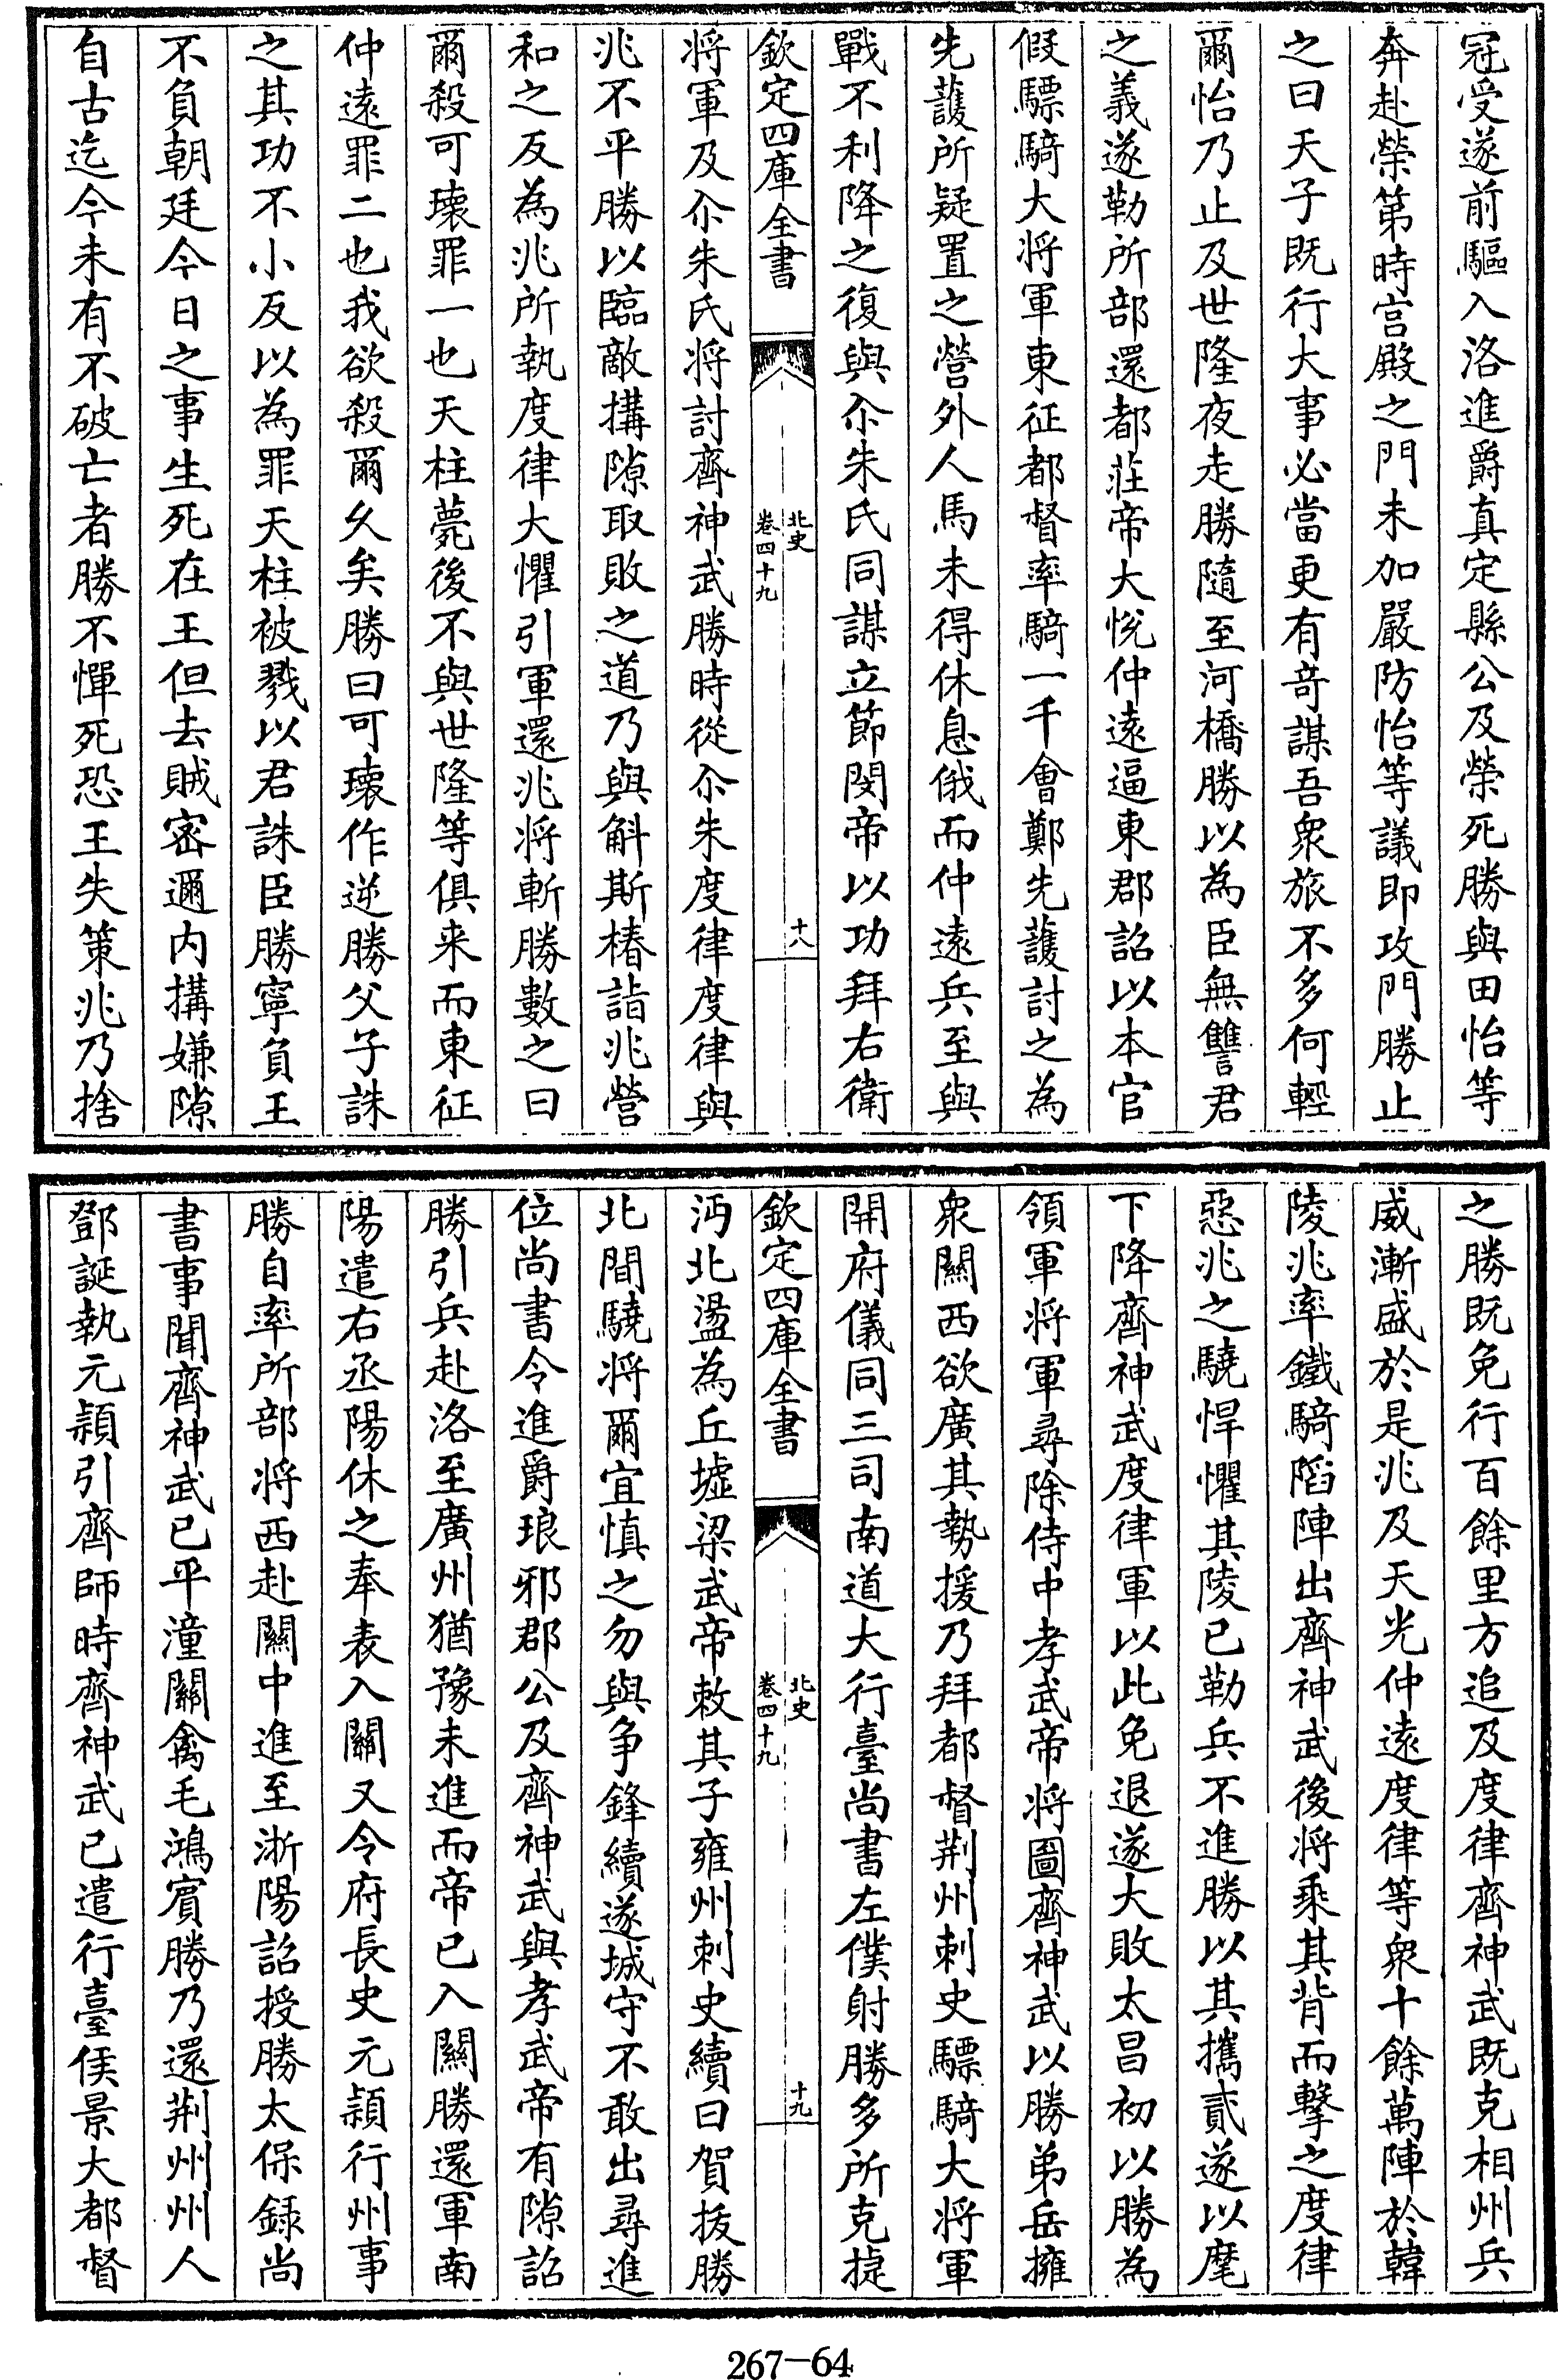 冠受遂前驅入洛進爵真定縣公及榮死勝與田怡等
奔赴榮第時宫殿之門未加嚴防怡等議即攻門勝止
之曰天子既行大事必當更有竒謀吾衆旅不多何輕
爾怡乃止及世隆夜走勝隨至河橋勝以為臣無讐君
之義遂勒所部還都莊帝大悅仲遠逼東郡詔以本官
假驃騎大将軍東征都督率騎一千會鄭先護討之為
先護所疑置之營外人馬未得休息俄而仲遠兵至與
戰不利降之復與尒朱氏同謀立節閔帝以功拜右衛
欽定四庫全書
北史
卷四十九
十八
将軍及尒朱氏将討齊神武勝時從尒朱度律度律與
兆不平勝以臨敵搆隙取敗之道乃與斛斯椿詣兆營
和之反為兆所執度律大懼引軍還兆将斬勝數之曰
爾殺可瓌罪一也天柱薨後不與世隆等俱来而東征
仲遠罪二也我欲殺爾久矣勝曰可瓌作逆勝父子誅
之其功不小反以為罪天柱被戮以君誅臣勝寧負王
不負朝廷今日之事生死在王但去賊密邇内搆嫌隙
自古迄今未有不破亡者勝不憚死恐王失策兆乃捨
之勝既免行百餘里方追及度律齊神武既克相州兵
威漸盛於是兆及天光仲遠度律等衆十餘萬陣於韓
陵兆率鐵騎陷陣出齊神武後将乘其背而擊之度律
惡兆之驍悍懼其陵已勒兵不進勝以其攜貳遂以麾
下降齊神武度律軍以此免退遂大敗太昌初以勝為
領軍将軍尋除侍中孝武帝将圖齊神武以勝弟岳擁
衆關西欲廣其勢援乃拜都督荆州刺史驃騎大将軍
開府儀同三司南道大行臺尚書左僕射勝多所克捷
欽定四庫全書
北史
卷四十九
十九
沔北盪為丘墟梁武帝敕其子雍州刺史續曰賀拔勝
北間驍将爾宜慎之勿與争鋒續遂城守不敢出尋進
位尚書令進爵琅邪郡公及齊神武與孝武帝有隙詔
勝引兵赴洛至廣州猶豫未進而帝已入關勝還軍南
陽遣右丞陽休之奉表入關又令府長史元頴行州事
勝自率所部将西赴關中進至淅陽詔授勝太保録尚
書事聞齊神武已平潼關禽毛鴻賓勝乃還荆州州人
鄧誕執元頴引齊師時齊神武已遣行臺侯景大都督
267-64